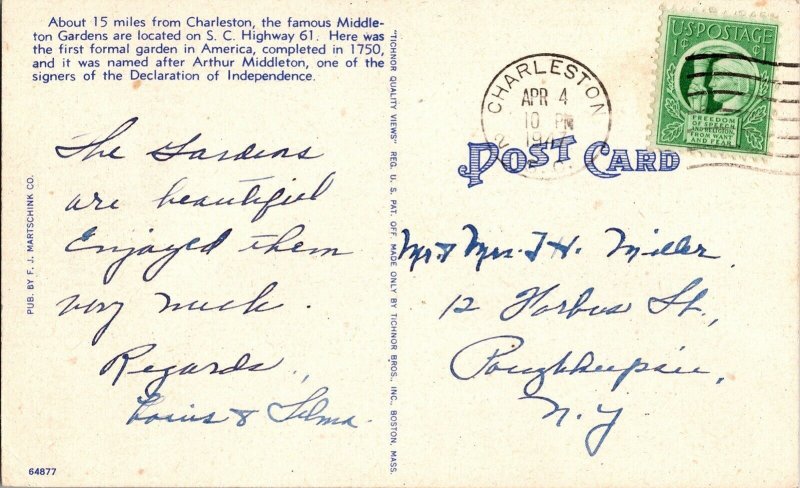 About 15 miles from Charleston, the famous Middle-
ton Gardens are located on S. C. Highway 61. Here was
the first formal garden in America, completed in 1750,
and it was named after Arthur Middleton, one of the
signers of the Declaration of Independence.
The Gardens
are beautiful
Enjoyed them
very much.
Regards,
& Selma.
64877
PUB. BY F. J. MARTSCHINK CO.
"TICHNOR QUALITY VIEWS" REG. U. S. PAT. OFF. MADE ONLY BY TICHNOR BROS., INC., BOSTON, MASS.
CHARLESTON
APR 4
10 PM
POST CARD
U.S. POSTAGE
1¢ 1¢
FREEDOM
OF SPEECH
AND RELIGION,
FROM WANT
AND FEAR
Mr & Mrs. H. Miller.
12 Forbus St.,
Poughkeepsie,
N. Y